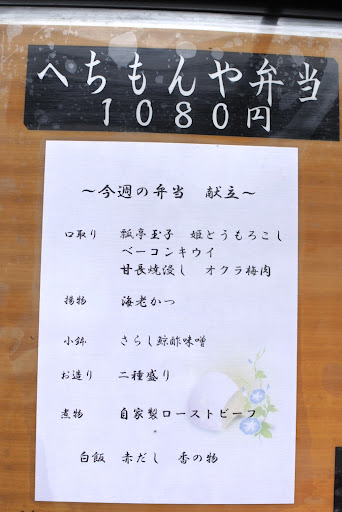 へちもんや弁当
1080円
〜今週の弁当 献立〜
口取り 瓢亭玉子 姫とうもろこし
ベーコンキウイ
甘長焼浸し オクラ梅肉
揚物 海老かつ
小鉢 さらし鯨酢味噌
お造り 二種盛り
煮物 自家製ローストビーフ
白飯 赤だし 香の物